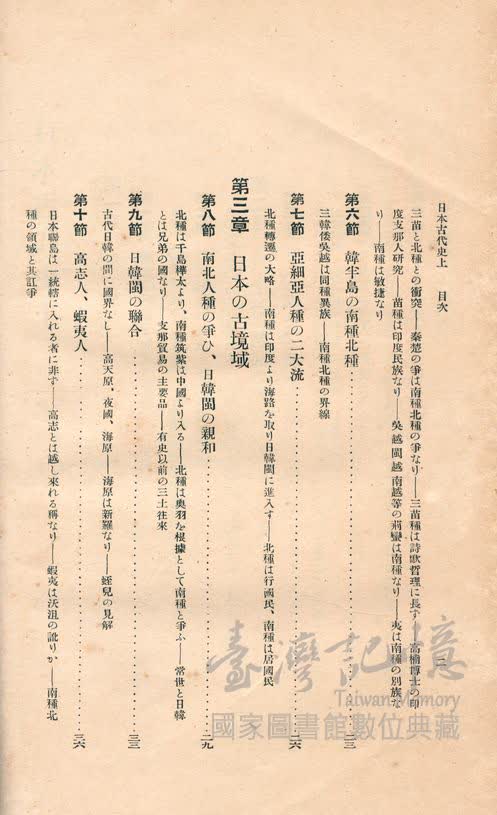 日本古代史上　目次　二
三苗と北種との衝突――秦楚の爭は南種北種の爭なり――三苗種は詩歌哲理に長す――高楠博士の印
度支那人研究――苗種は印度民族なり――吳越閩越南越等の荊蠻は南種なり――夷は南種の別族な
り――南種は敏捷なり
第六節　韓半島の南種北種……二三
三韓倭吳越は同種異族――南種北種の界線
第七節　亞細亞人種の二大流……二六
北種轉遷の大略――南種は印度より海路を取り日韓閩に進入す――北種は行國民、南種は居國民
第三章　日本の古境域
第八節　南北人種の爭ひ、日韓閩の親和……二九
北種は千島樺太より、南種筑紫は中國より入る――北種は奥羽を根據として南種と爭ふ――常世と日韓
とは兄弟の國なり――支那貿易の主要品――有史以前の三土往來
第九節　日韓閩の聯合……三三
古代日韓の間に國界なし――高天原、夜國、海原――海原は新羅なり――蛭兒の見解
第十節　高志人、蝦夷人……三六
日本聯島は一統轄に入れる者に非す――高志とは越し來れる稱なり――蝦夷は沃沮の訛りか――南種北
種の領域と其訌爭
臺灣記憶
Taiwan Memory
國家圖書館數位典藏